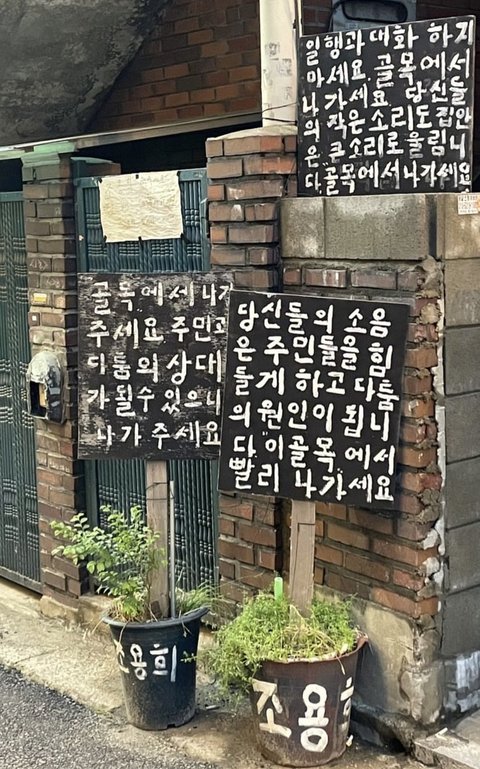 일행과 대화 하지
마세요 골목에서
나가세요 당신들
의 작은 소리도 집안
은 큰소리로 울립니
다 골목에서 나가세요
골목에서 나가
주세요 주민과
다툼의 상대
가 될수 있으니
나가 주세요
당신들의 소음
은 주민들을 힘
들게 하고 다툼
의 원인이 됩니
다 이 골목에서
빨리 나가세요
조용히
조용히